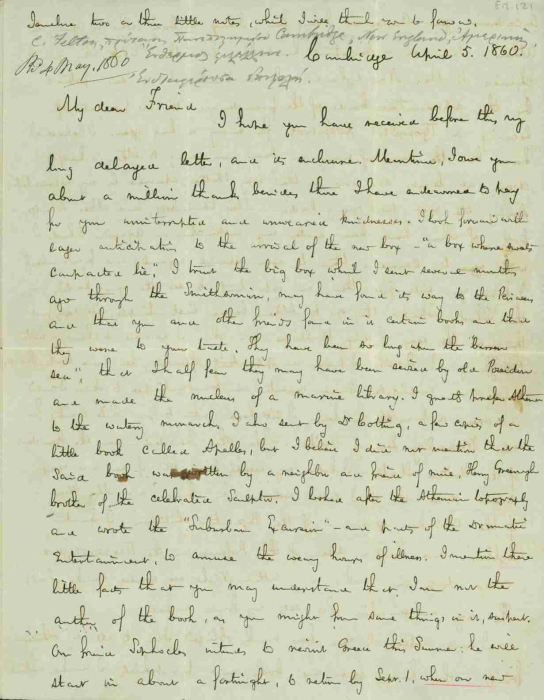 I enclose two or three little notes, which I will thank you to forward.
C. Felton, πρύτανις Πανεπιστημίου Cambridge, New England, Ἀμερική
Cambridge April 5. 1860.
Rd 4 May. 1860
My dear Friend
I hope you have received before this my
long delayed letter, and its enclosure. Meantime, I owe you
about a million thanks besides those I have endeavored to pay
for your uninterrupted and unwearied kindnesses. I look forward with
eager anticipation to the arrival of the new box - "a box where sweets
compacted lie." I trust the big box which I sent several months
ago through the Smithsonian, may have found its way to the Piraeus
and that you and other friends found in it certain books and that
they were to your taste. They have been so long upon the "Barren
sea", that I half fear they may have been seized by old Poseidon
and made the nucleus of a marine library. I greatly prefer Athena
to the watery monarch. I also sent by Dr Cotting, a few copies of a
little book called Apelles, but I believe I did not mention that the
said book was written by a neighbor and friend of mine, Henry Greenough
brother of the celebrated Sculptor. I looked after the Athenian topography
and wrote the "Suburban Excursion" - and parts of the Dramatic
Entertainment, to amuse the weary hours of illness. I mention these
little facts that you may understand that I am not the
author of the book, as you might from some things in it, suspect.
Our friend Sophocles intends to revisit Greece this Summer: he will
start in about a fortnight, to return by Sept. 1. when our new